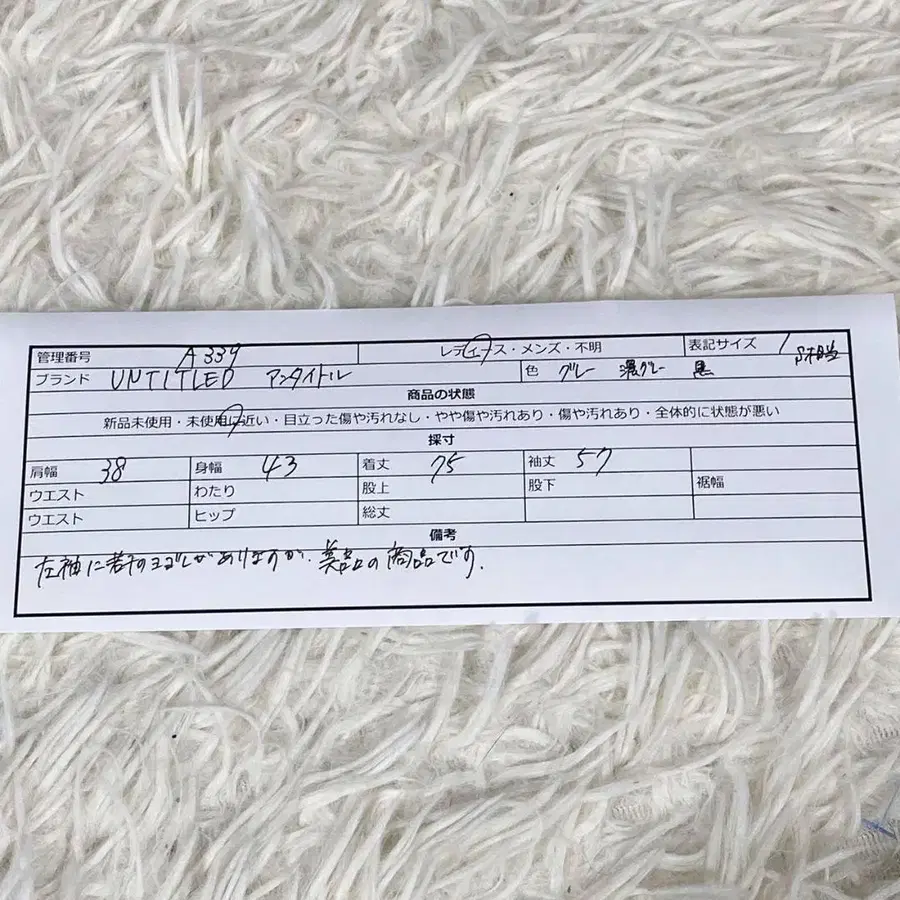 管理番号 A339 レディース・メンズ・不明 表記サイズ 1 S相当
ブランド UNTITLED アンタイトル 色 グレー 濃グレー 黒
商品の状態
新品未使用・未使用に近い・目立った傷や汚れなし・やや傷や汚れあり・傷や汚れあり・全体的に状態が悪い
採寸
肩幅 38 身幅 43 着丈 75 袖丈 57
ウエスト わたり 股上 股下 裾幅
ウエスト ヒップ 総丈
備考
左袖に若干のヨゴレがありますが、美品の商品です.